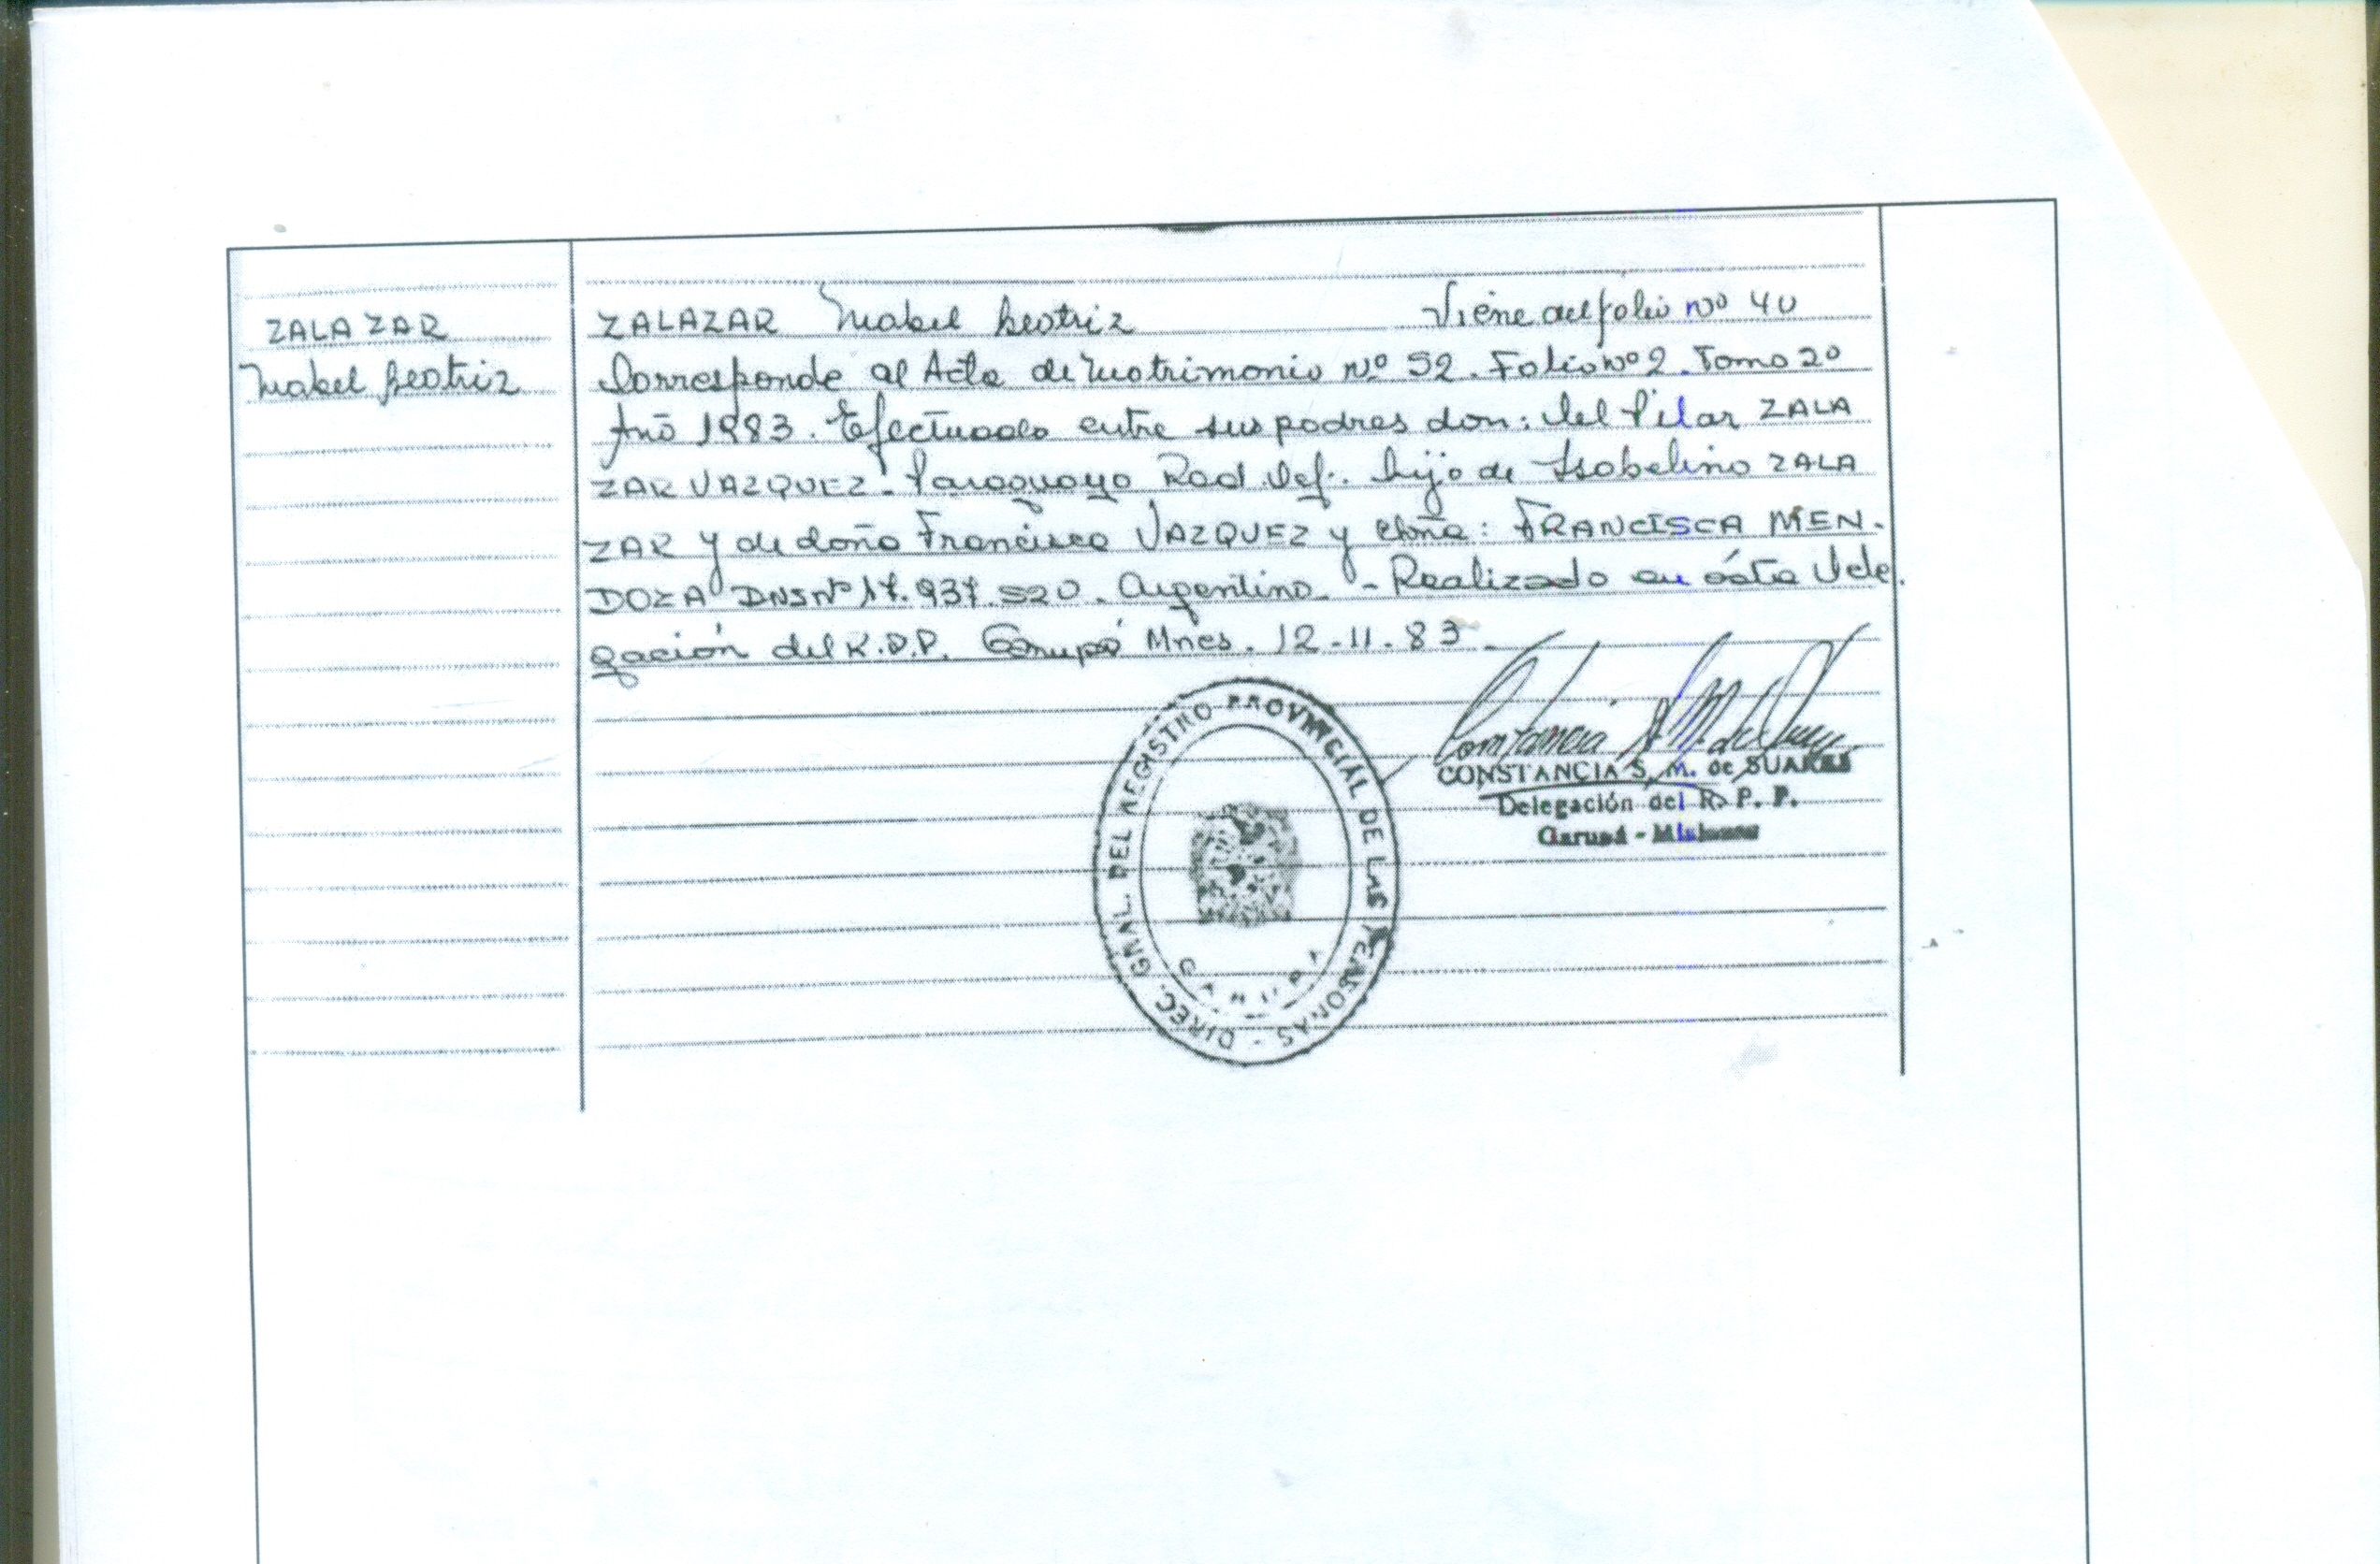 ZALAZAR
Mabel Beatriz
ZALAZAR Mabel Beatriz Viene del folio nº 40
Corresponde al Acta de Matrimonio nº 52. Folio nº 2. Tomo 2º
Año 1983. Efectuado entre sus padres don: Del Pilar ZALA
ZAR VAZQUEZ. Paraguayo Rad. Def. hijo de Isabelino ZALA
ZAR y de doña Francisca VAZQUEZ y doña: FRANCISCA MEN-
DOZA DNI nº 17.937.520. Argentina. - Realizado en ésta Dele
gación del R.P.P. Garupá Mnes. 12-11-83.
CONSTANCIA S. M. de SUAREZ
Delegación del R. P. P.
Garupá - Misiones
DIREC. GRAL. DEL REGISTRO PROVINCIAL DE LAS PERSONAS -
GARUPA